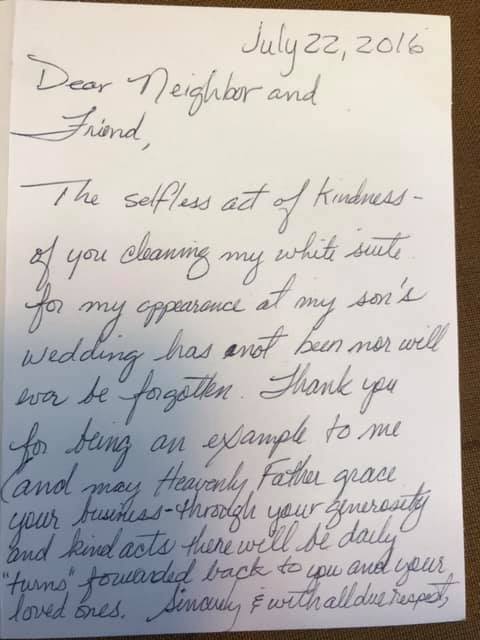 July 22, 2016
Dear Neighbor and
Friend,
The selfless act of kindness-
of you cleaning my white suite
for my appearance at my son's
wedding has not been nor will
ever be forgotten. Thank you
for being an example to me
(and may Heavenly Father grace
your business - through your generosity
and kind acts there will be daily
"turns" forwarded back to you and your
loved ones. Sincerely & with all due respect,